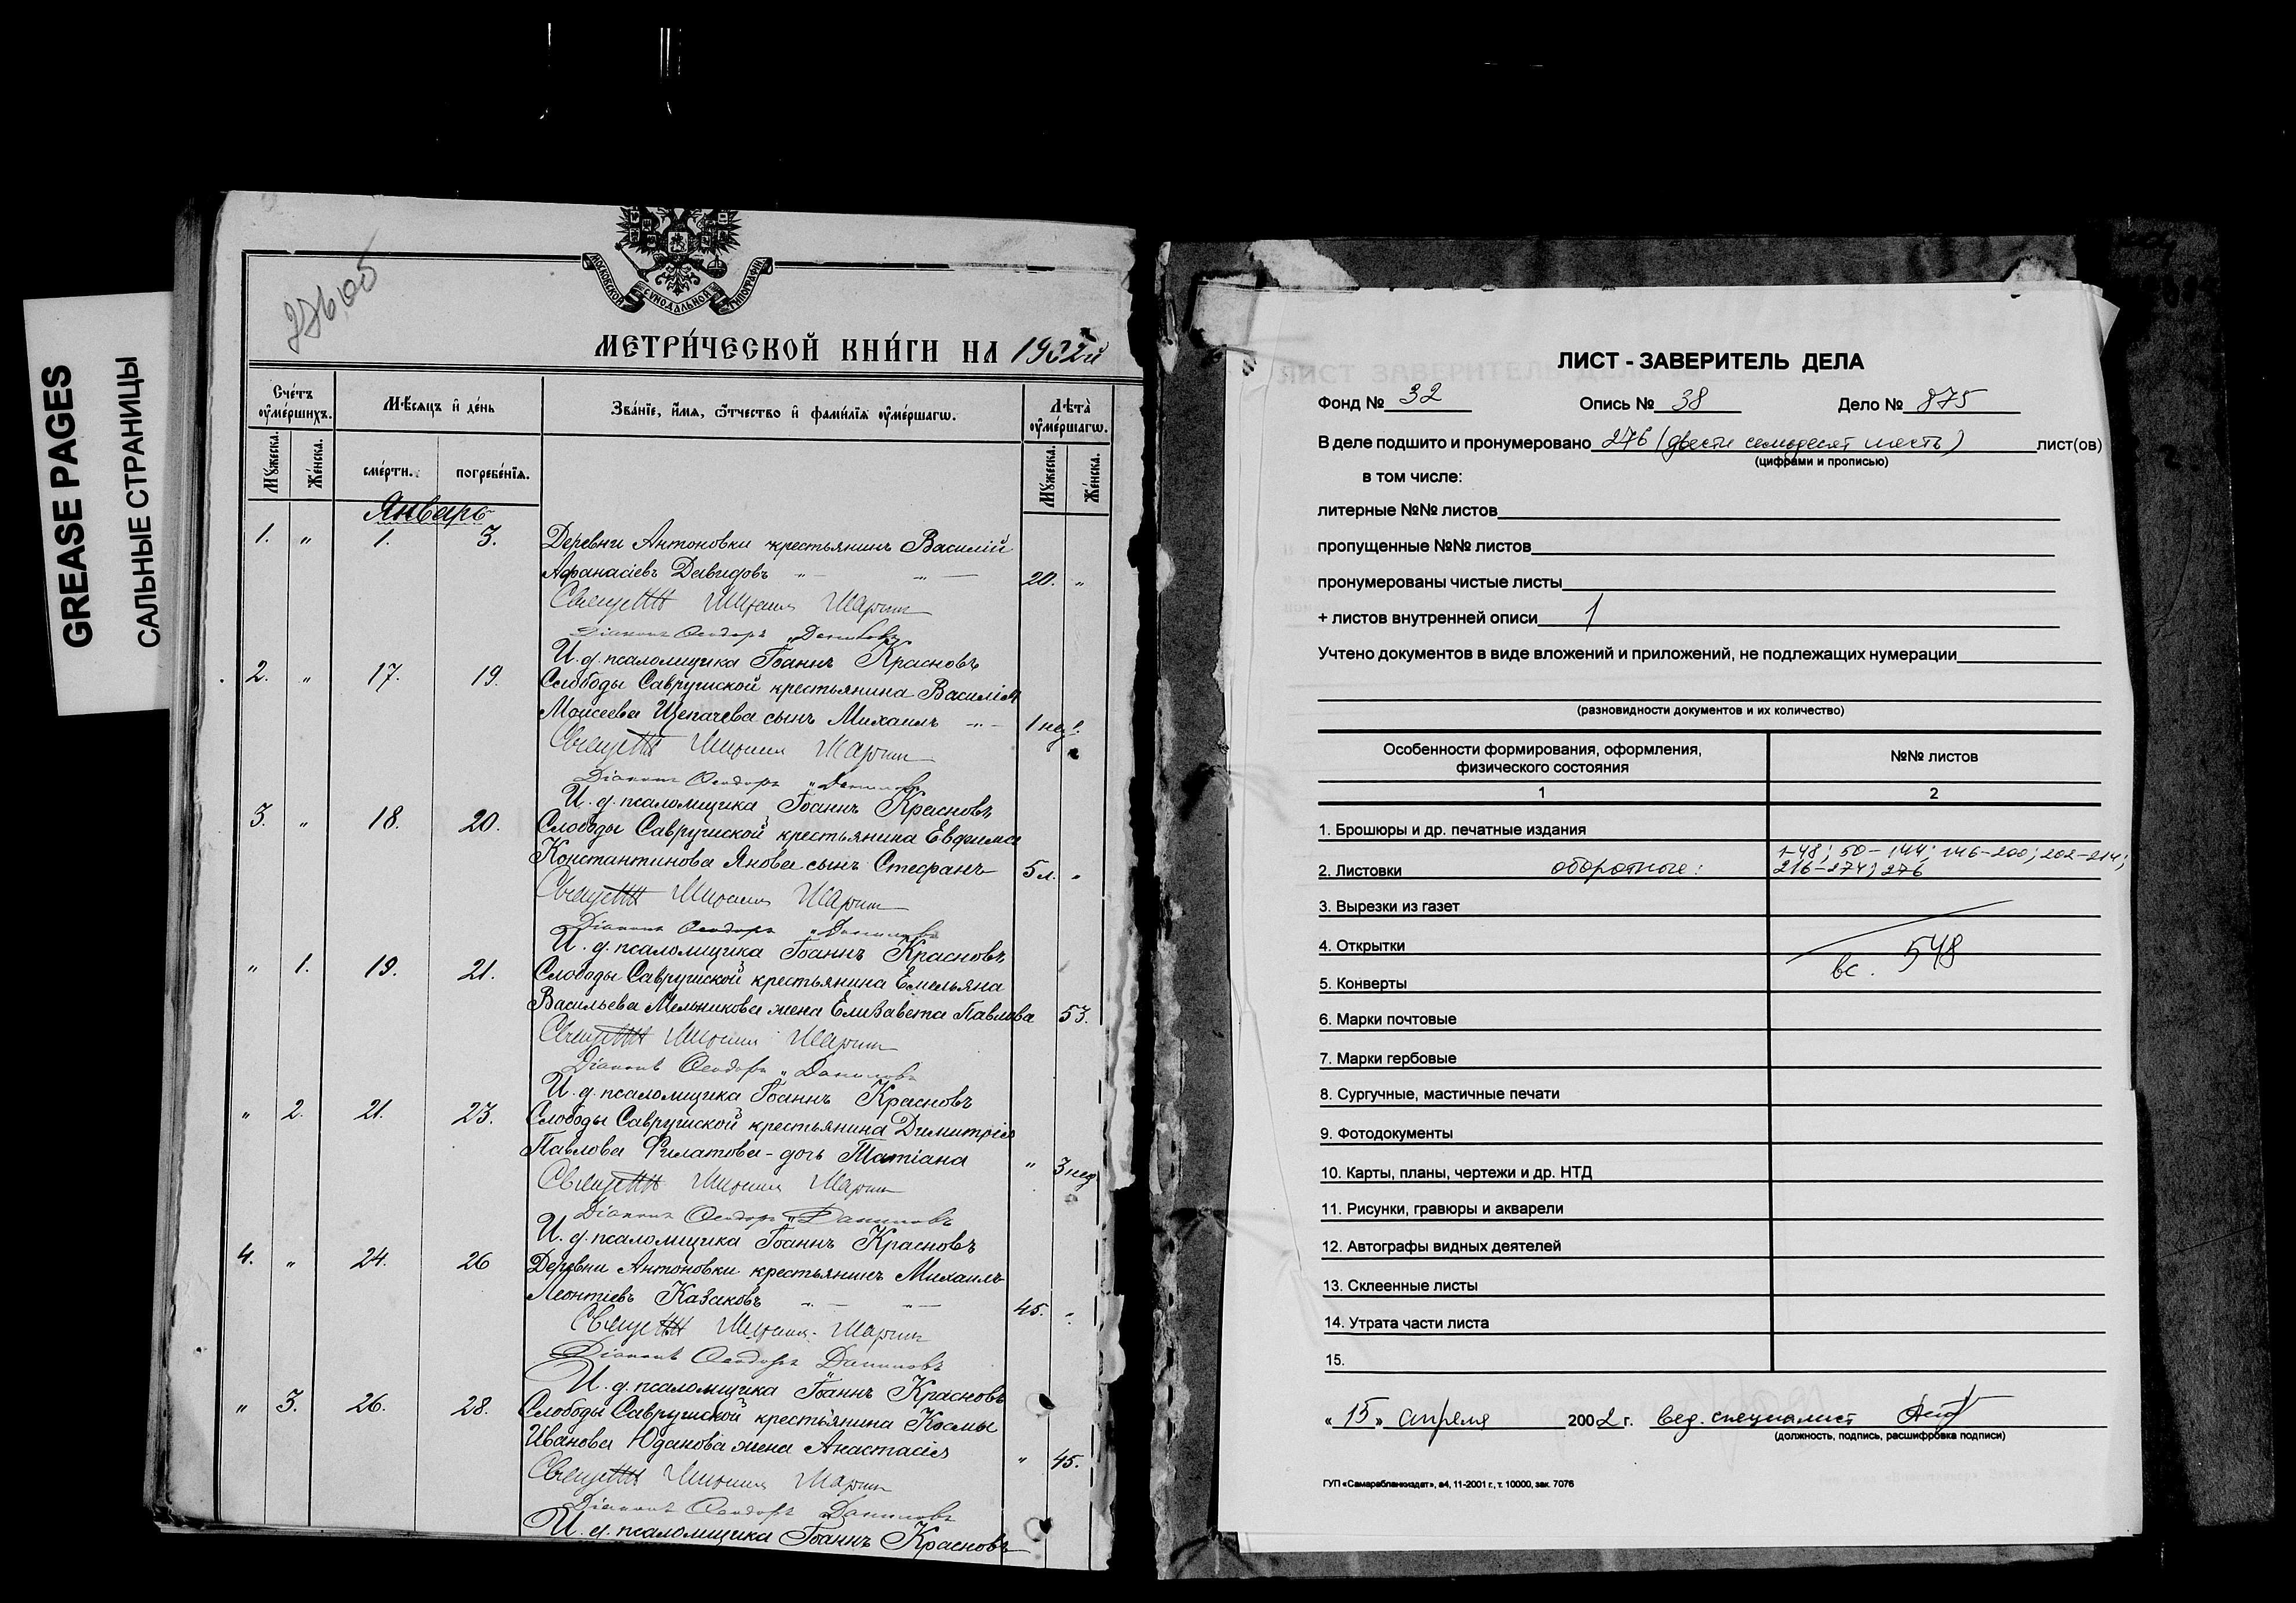 GREASE PAGES
САЛЬНЫЕ СТРАНИЦЫ
276 об
МОСКОВСКОЙ СѴНОДАЛЬНОЙ ТИПОГРАФІИ
МЕТРИ́ЧЕСКОЙ КНИ́ГИ НА 1902й
Сче́тъ ᲂу҆ме́ршихъ.
Мѣ́сяцъ и҆ де́нь
Зва́нїе, и҆́мѧ, ѻ҆́тчество и҆ фами́лїѧ ᲂу҆ме́ршагѡ.
Лѣта̀ ᲂу҆ме́ршагѡ.
Мꙋ́жеска.
Же́нска.
сме́рти.
погребе́нїѧ.
Мꙋ́жеска.
Же́нска.
Январь
1. " 1. 3. Деревни Антоновки крестьянинъ Василій
Афанасіевъ Давидовъ " — " — 20. "
Священникъ Шарин
Діаконъ Ѳеодоръ Даниловъ
И. д. псаломщика Іоаннъ Красновъ
2. " 17. 19. Слободы Савручиской крестьянина Василія
Моисеева Щепачева сынъ Михаилъ " — 1 нед.
Священникъ Шарин
Діаконъ Ѳеодоръ Даниловъ
И. д. псаломщика Іоаннъ Красновъ
3. " 18. 20. Слободы Савручиской крестьянина Евфимія
Константинова Янова сынъ Стефанъ 5 л. "
Священникъ Шарин
Діаконъ Ѳеодоръ Даниловъ
И. д. псаломщика Іоаннъ Красновъ
" 1. 19. 21. Слободы Савручиской крестьянина Емельяна
Васильева Мельникова жена Елизавета Павлова 53.
Священникъ Шарин
Діаконъ Ѳеодоръ Даниловъ
И. д. псаломщика Іоаннъ Красновъ
" 2. 21. 23. Слободы Савручиской крестьянина Димитрія
Павлова Филатова - дочь Татіана " 3 нед
Священникъ Шарин
Діаконъ Ѳеодоръ Даниловъ
И. д. псаломщика Іоаннъ Красновъ
4. " 24. 26 Деревни Антоновки крестьянинъ Михаилъ
Леонтіевъ Казаковъ " — " — 45. "
Священникъ Шарин
Діаконъ Ѳеодоръ Даниловъ
И. д. псаломщика Іоаннъ Красновъ
" 3. 26. 28. Слободы Савручиской крестьянина Космы
Иванова Юданова жена Анастасія " 45.
Священникъ Шарин
Діаконъ Ѳеодоръ Даниловъ
И. д. псаломщика Іоаннъ Красновъ
ЛИСТ - ЗАВЕРИТЕЛЬ ДЕЛА
Фонд № 32 Опись № 38 Дело № 875
В деле подшито и пронумеровано 276 (двести семьдесят шесть) лист(ов)
(цифрами и прописью)
в том числе:
литерные №№ листов
пропущенные №№ листов
пронумерованы чистые листы
+ листов внутренней описи 1
Учтено документов в виде вложений и приложений, не подлежащих нумерации
(разновидности документов и их количество)
Особенности формирования, оформления, физического состояния
№№ листов
1
2
1. Брошюры и др. печатные издания
1-48; 50-144; 146-200; 202-214;
2. Листовки оборотные: 216-274; 276
3. Вырезки из газет
4. Открытки
вс. 548
5. Конверты
6. Марки почтовые
7. Марки гербовые
8. Сургучные, мастичные печати
9. Фотодокументы
10. Карты, планы, чертежи и др. НТД
11. Рисунки, гравюры и акварели
12. Автографы видных деятелей
13. Склеенные листы
14. Утрата части листа
15.
« 15 » апреля 2002 г. вед. специалист
(должность, подпись, расшифровка подписи)
ГУП «Самарабланкиздат», а4, 11-2001 г., т. 10000, зак. 7076